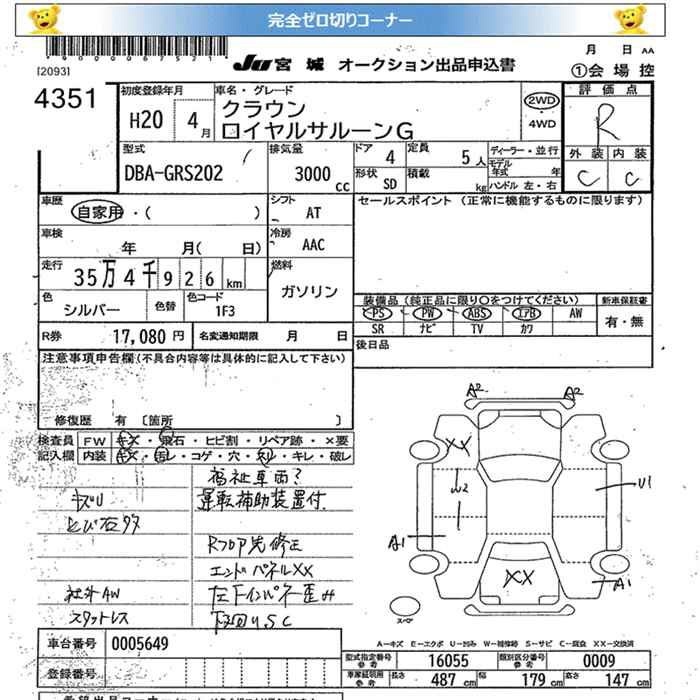 完全ゼロ切りコーナー
[2093]
月 日 AA
JU 宮城 オークション出品申込書
①会場控
4351
初度登録年月
H20 4月
車名・グレード
クラウン
ロイヤルサルーンG
2WD
・
4WD
評価点
R
外装 内装
C C
型式
DBA-GRS202
排気量
3000cc
ドア 4
定員 5人
形状 SD
積載 kg
ディーラー・並行
モデル年式 年
ハンドル 左・右
車歴
自家用・( )
シフト AT
セールスポイント (正常に機能するものに限ります)
車検
年 月( 日)
冷房 AAC
走行
35万4千926km
燃料
ガソリン
色
シルバー
色替
色コード
1F3
装備品 (純正品に限り○をつけてください)
PS PW ABS エアB AW
SR ナビ TV カワ
新車保証書
有・無
R券 17,080円
名変通知期限 月 日
後日品
注意事項申告欄(不具合内容等は具体的に記入して下さい)
修復歴 有 〔箇所 〕
検査員記入欄
FW キズ・飛石・ヒビ割・リペア跡・×要
内装 キズ・汚レ・コゲ・穴・スレ・キレ・破レ
福祉車両?
キズU 運転補助装置付
とび石多
Rフロア先修正
エンドパネルXX
社外AW 左下インパネ歪み
スタットレス 下回りU,S,C
A2 A2
XX
U2
U1
A1
XX
A1
スペア
A-キズ E-エクボ U-凹み W-補修跡 S-サビ C-腐食 XX-交換済
車台番号 0005649
登録番号
型式指定番号 参考 16055
類別区分番号 参考 0009
車庫証明用 参考 長さ 487cm 幅 179cm 高さ 147cm